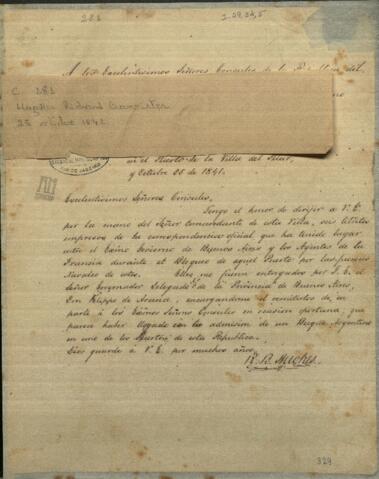 283
2-29,24,5
A los Excelentisimos Señores Consules de la Republica del
C 283
Hughes Richard
25 octubre 1842
RIO DE JANEIRO
en el Puerto de la Villa del Pilar,
y Octubre 25 de 1841.
Excelentisimos Señores Consules,
Tengo el honor de dirijir a V.E.
por la mano del Señor Comandante de esta Villa, un
impreso de la correspondencia oficial que ha tenido lugar
entre el Exmo Govierno de Buenos Aires y los Agentes de la
Francia durante el Bloqueo de aquel Puerto por las fuerzas
Navales de estos. Ellos me fueron entregados por S. E. el
Señor Governador Delegado de la Provincia de Buenos Aires,
Don Felipe de Arana, encargandome el remitirlos de su
parte á los Exmos Señores Consules en ocasion oportuna, que
parece haber llegado con la admision de un Buque Argentino
en uno de los Puertos de esta Republica.
Dios guarde á V. E. por muchos años.
R. B. Hughes.
329